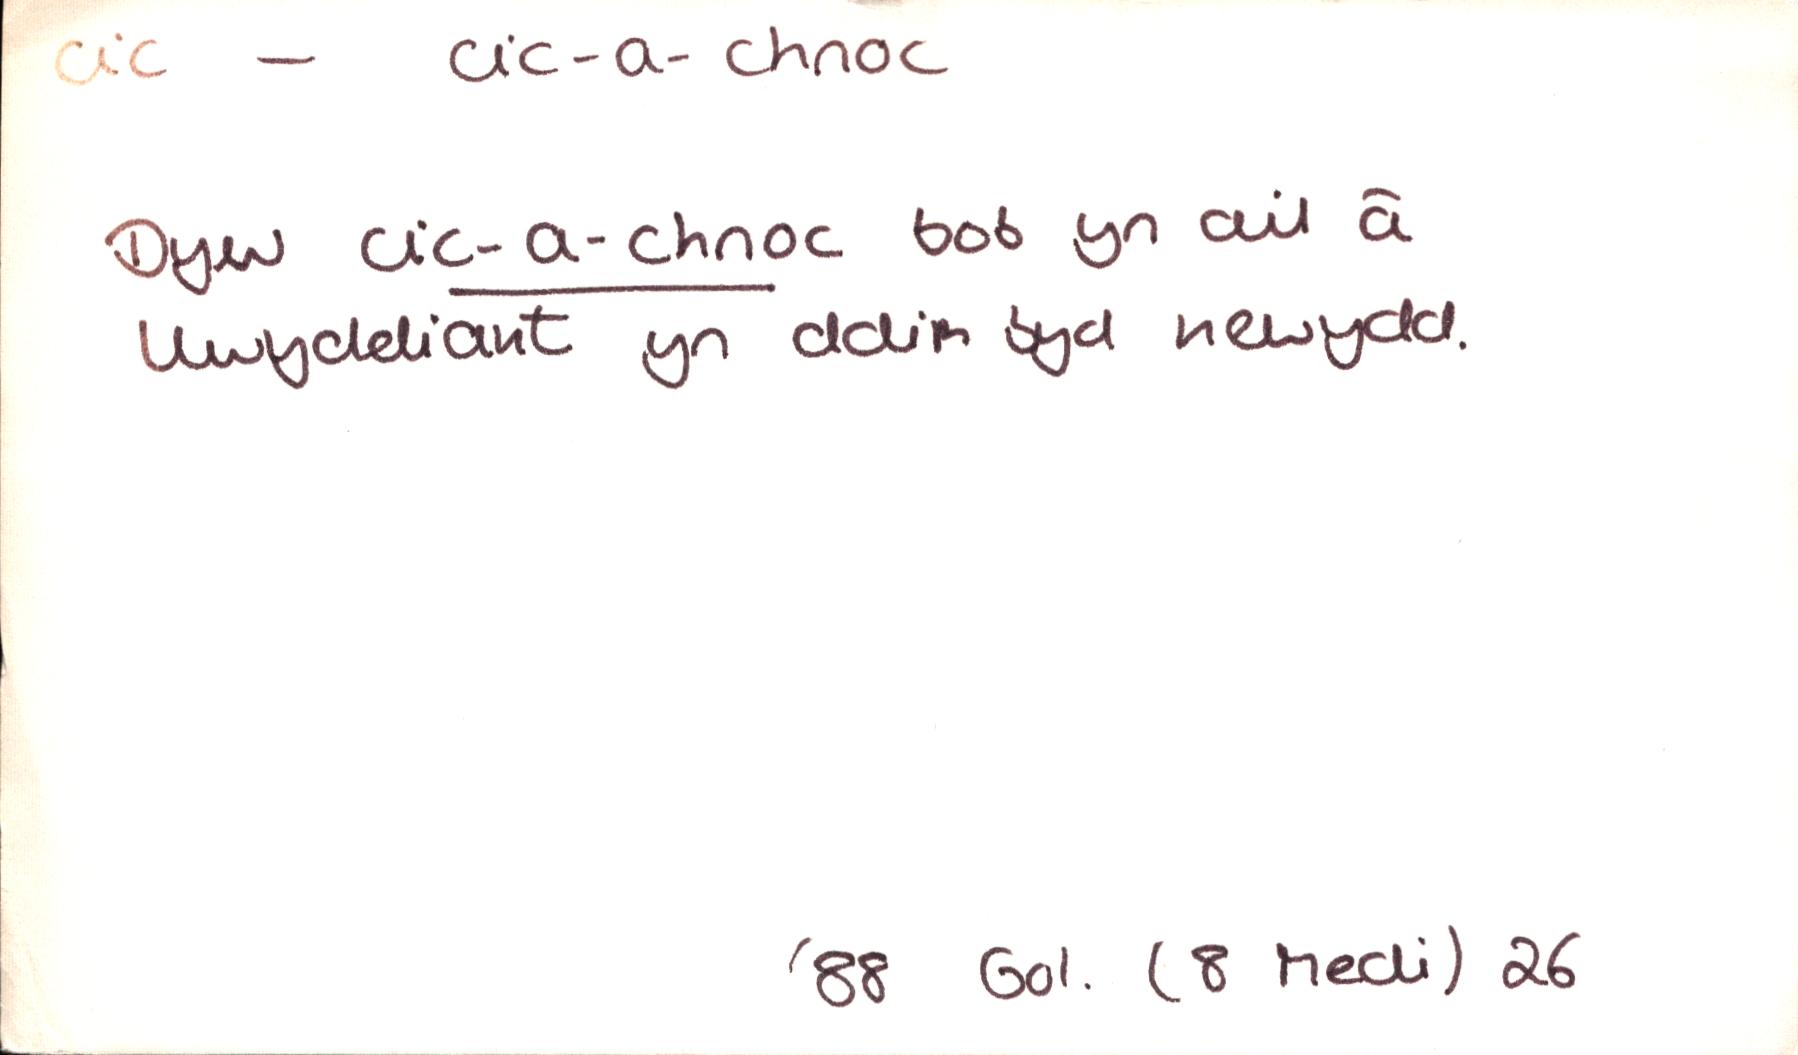 cic - cic-a-chnoc
Dyw cic-a-chnoc bob yn ail â
llwyddiant yn ddim byd newydd.
'88 Gol. (8 Medi) 26